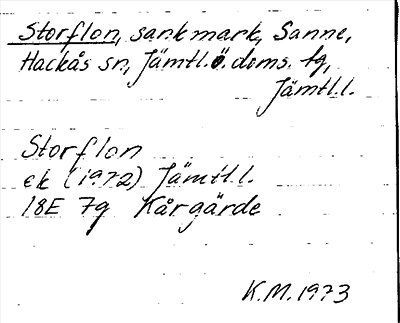 Storflon, sankmark, Sanne,
Hackås sn, Jämtl. ö. doms. tg,
Jämtl.l.
Storflon
ek (1972) Jämtl.l.
18E 7g Kårgärde
K.M. 1973